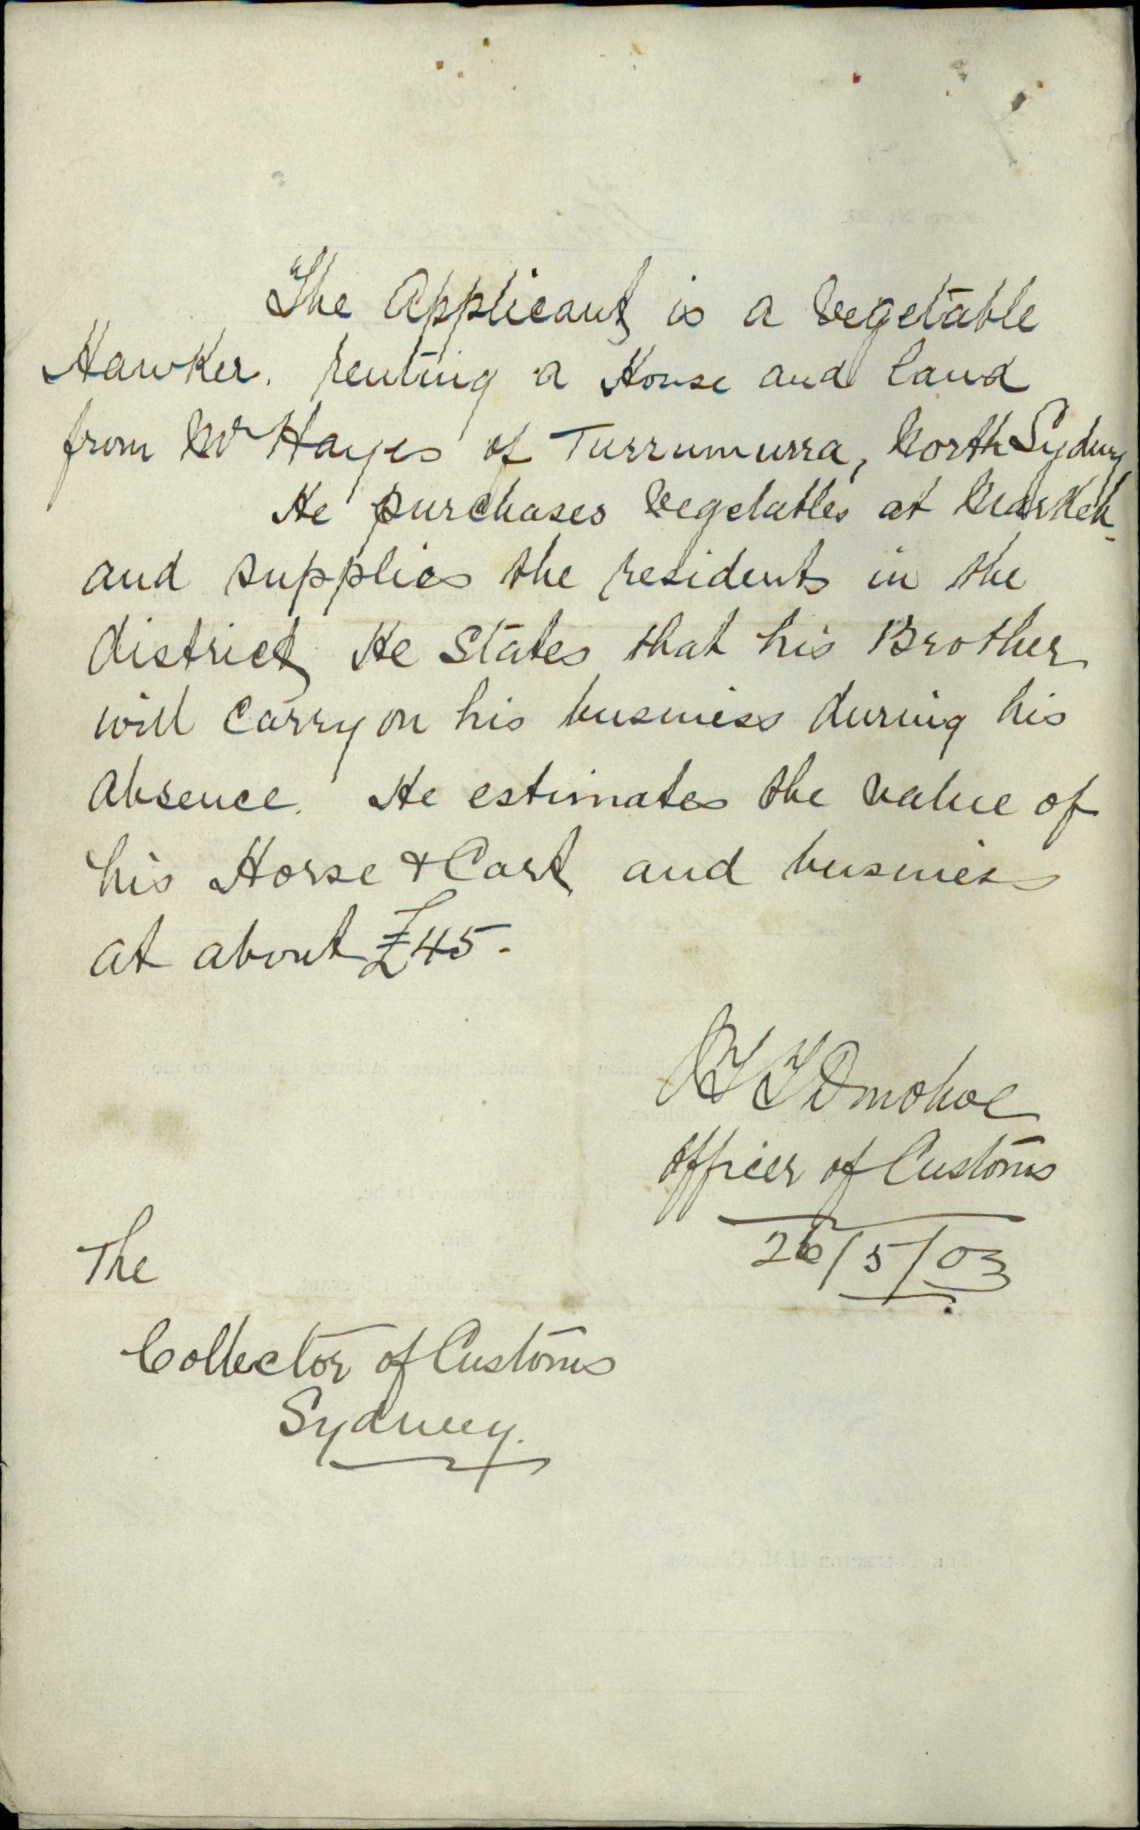 The Applicant is a vegetable
Hawker. renting a House and land
from Mr Hayes of Turrumurra, North Sydney
He purchases vegetables at Market
and supplies the residents in the
district He States that his Brother
will carry on his business during his
absence. He estimates the value of
his Horse & Cart and business
at about £45.
Donohoe
Officer of Customs
26/5/03
The
Collector of Customs
Sydney.